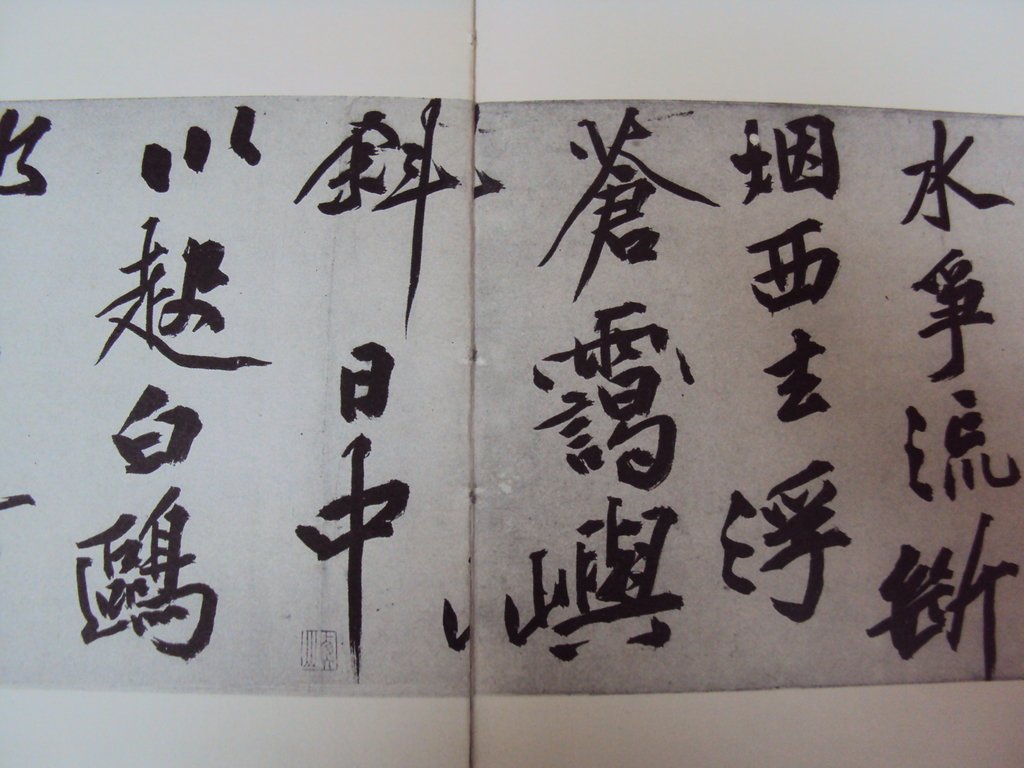 水爭流斷
烟西去浮
蒼靄嶼
斜日中
川起白鷗